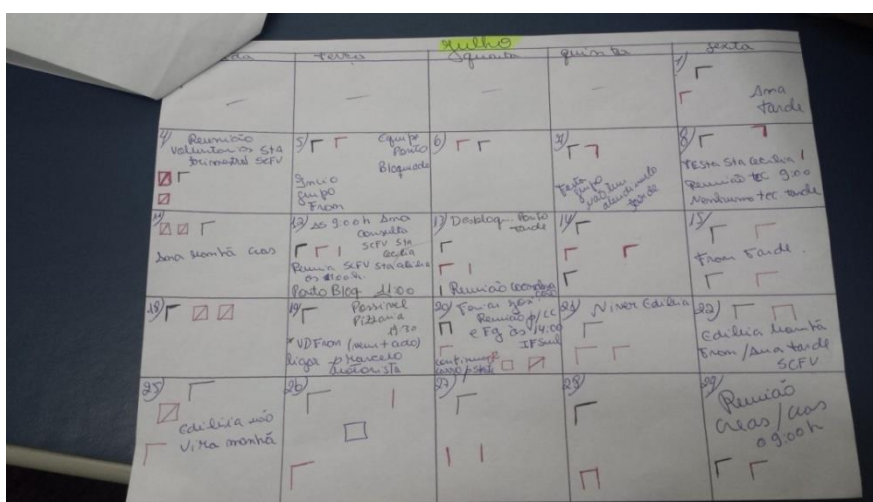 Julho
terça quarta quinta sexta
1)
Ana
tarde
4) Reunião
voluntarios Sta
trimestral SCFV
5) Equipe
Ponto
Bloqueado
Início
grupo
From
6)
7)
Festa
grupo
não tem
atendimento
tarde
8)
Festa Sta Cecilia
Reunião tec 9:00
Nenhuma tec. tarde
11)
Ana Manhã Cras
12) às 9:00h Ana
Consulta
SCFV Sta
Cecilia
Reunia SCFV Sta Cecilia
Ponto Bloq 11:00
13) Desbloq. Ponto
tarde
Reunião
14)
15)
From Tarde.
18)
19) Possivel
Pizzaria
* VD From
ligar p Marcelo
motorista
20)
Reunião p/CC
e Fg às 14:00
IFSul
21) Niver Ediléia
22)
Edileia Manhã
From / Ana tarde
SCFV
25)
Edileia não
Vira manhã
26)
27)
28)
29)
Reunião
Creas / Cras
09:00h